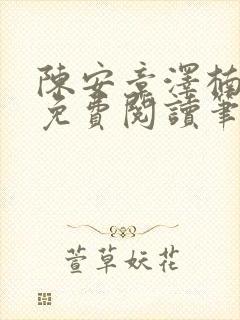 陳安章澤楠
免費閱讀筆
萱草妖花